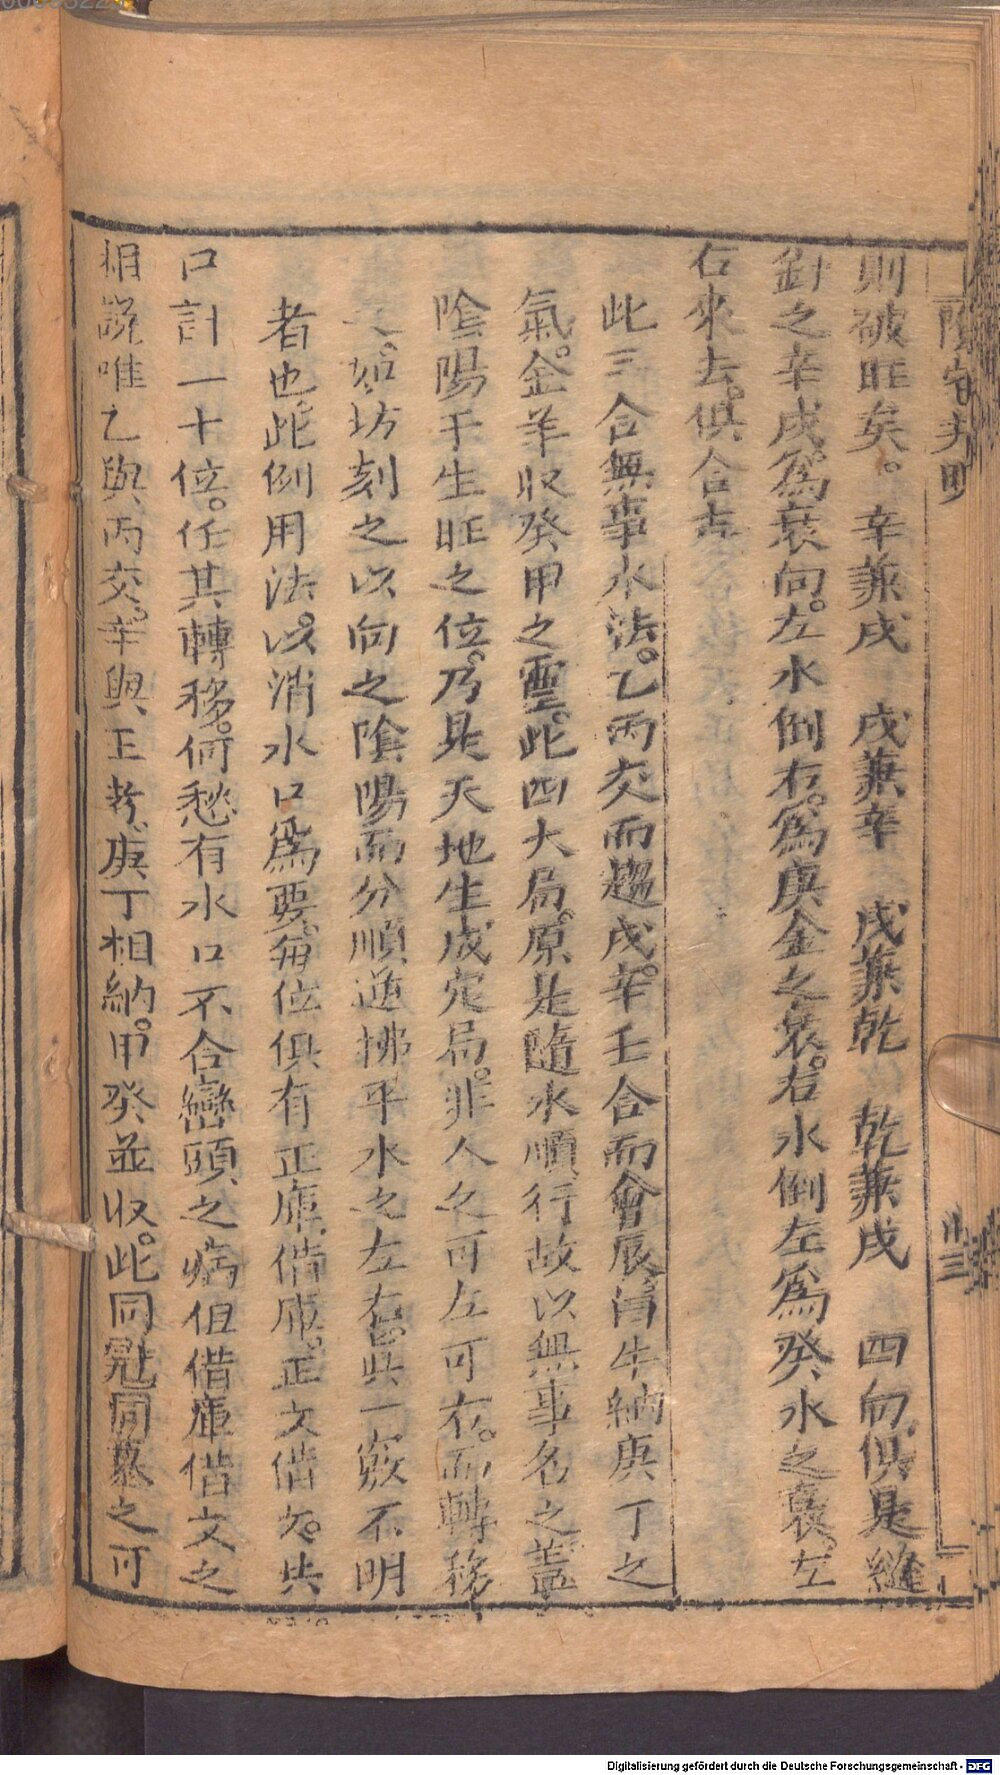 則破旺矣。辛兼戌　戌兼辛　戌兼乾　乾兼戌　四向俱是縫
針之辛戌。為衰向。左水倒右。為庚金之衰。右水倒左為癸水之衰。左
右來去。俱合吉
此三合無事水法。乙丙交而趨戌。辛壬合而會辰。牛納庚丁之
氣。金羊收癸甲之靈。此四大局。原是隨水順行故以無事名之。蓋
陰陽干生旺之位。乃是天地生成定局。非人之可左可右。而轉移
如坊刻之以向之陰陽而分順逆拂乎水之左右。此一竅不明
者也。此例用法。以消水口為要。每位俱有正庫借庫。正文借文。共
口計一十位。任其轉移。何愁有水口不合巒頭之病但借庫借文之
相說唯乙與丙交。辛與壬考。庚丁相納。甲癸並收。此同冠同墓之可
陰宅井明
廿三
Digitalisierung gefördert durch die Deutsche Forschungsgemeinschaft - DFG